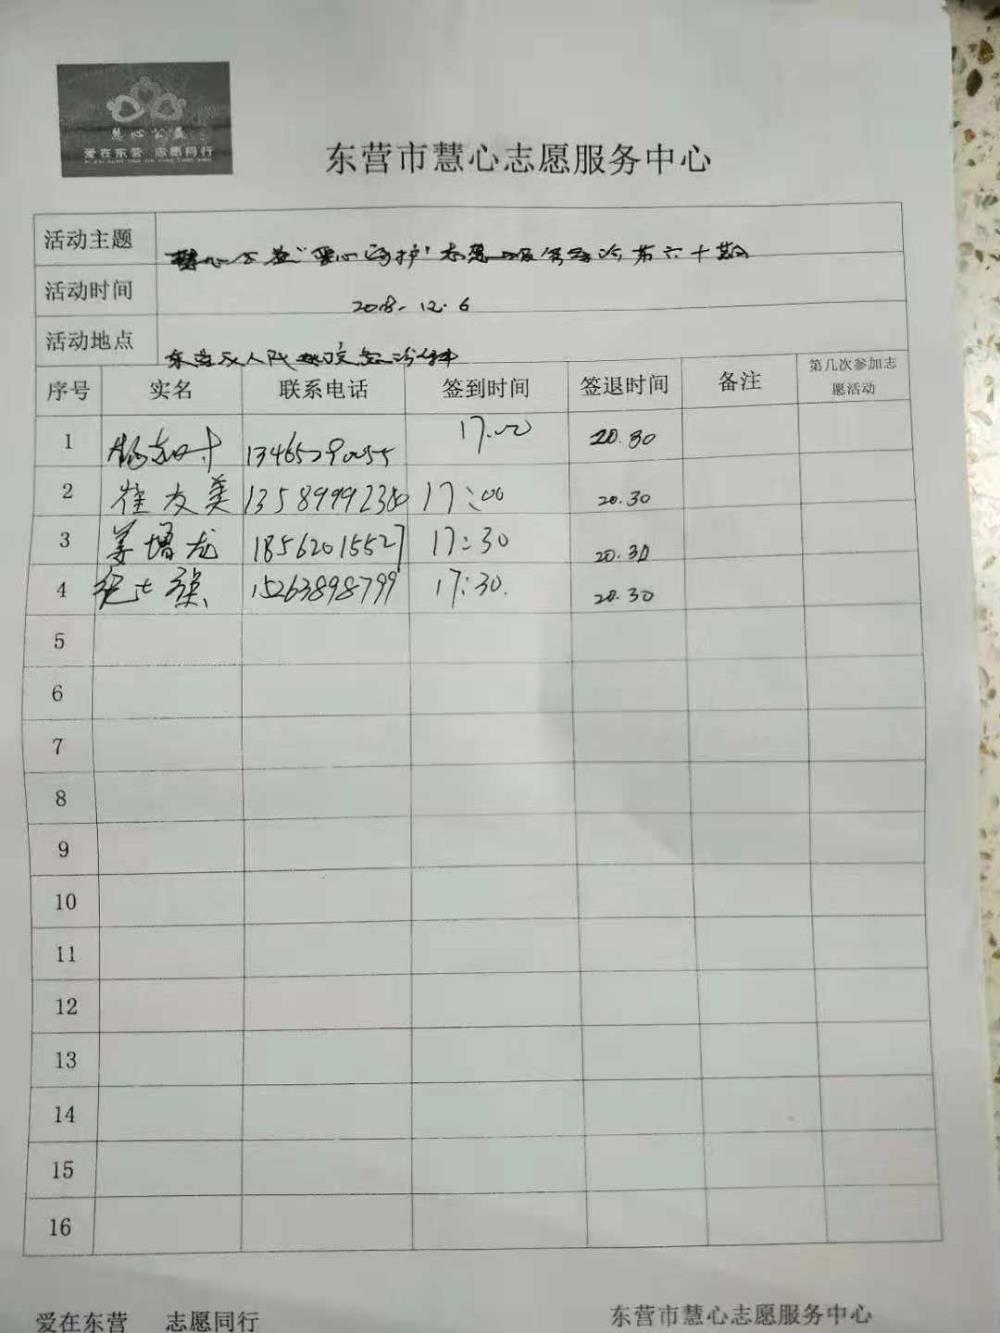 慧心公益
爱在东营 志愿同行
东营市慧心志愿服务中心
活动主题 慧心公益"爱心守护"志愿服务 第六十期
活动时间 2018.12.6
活动地点 东营区人民医院急诊
序号 实名 联系电话 签到时间 签退时间 备注 第几次参加志愿活动
1 17:00 20.30
2 崔友美 17:00 20.30
3 姜增龙 18562015527 17:30 20.30
4 15263898799 17:30. 20.30
5
6
7
8
9
10
11
12
13
14
15
16
爱在东营 志愿同行 东营市慧心志愿服务中心